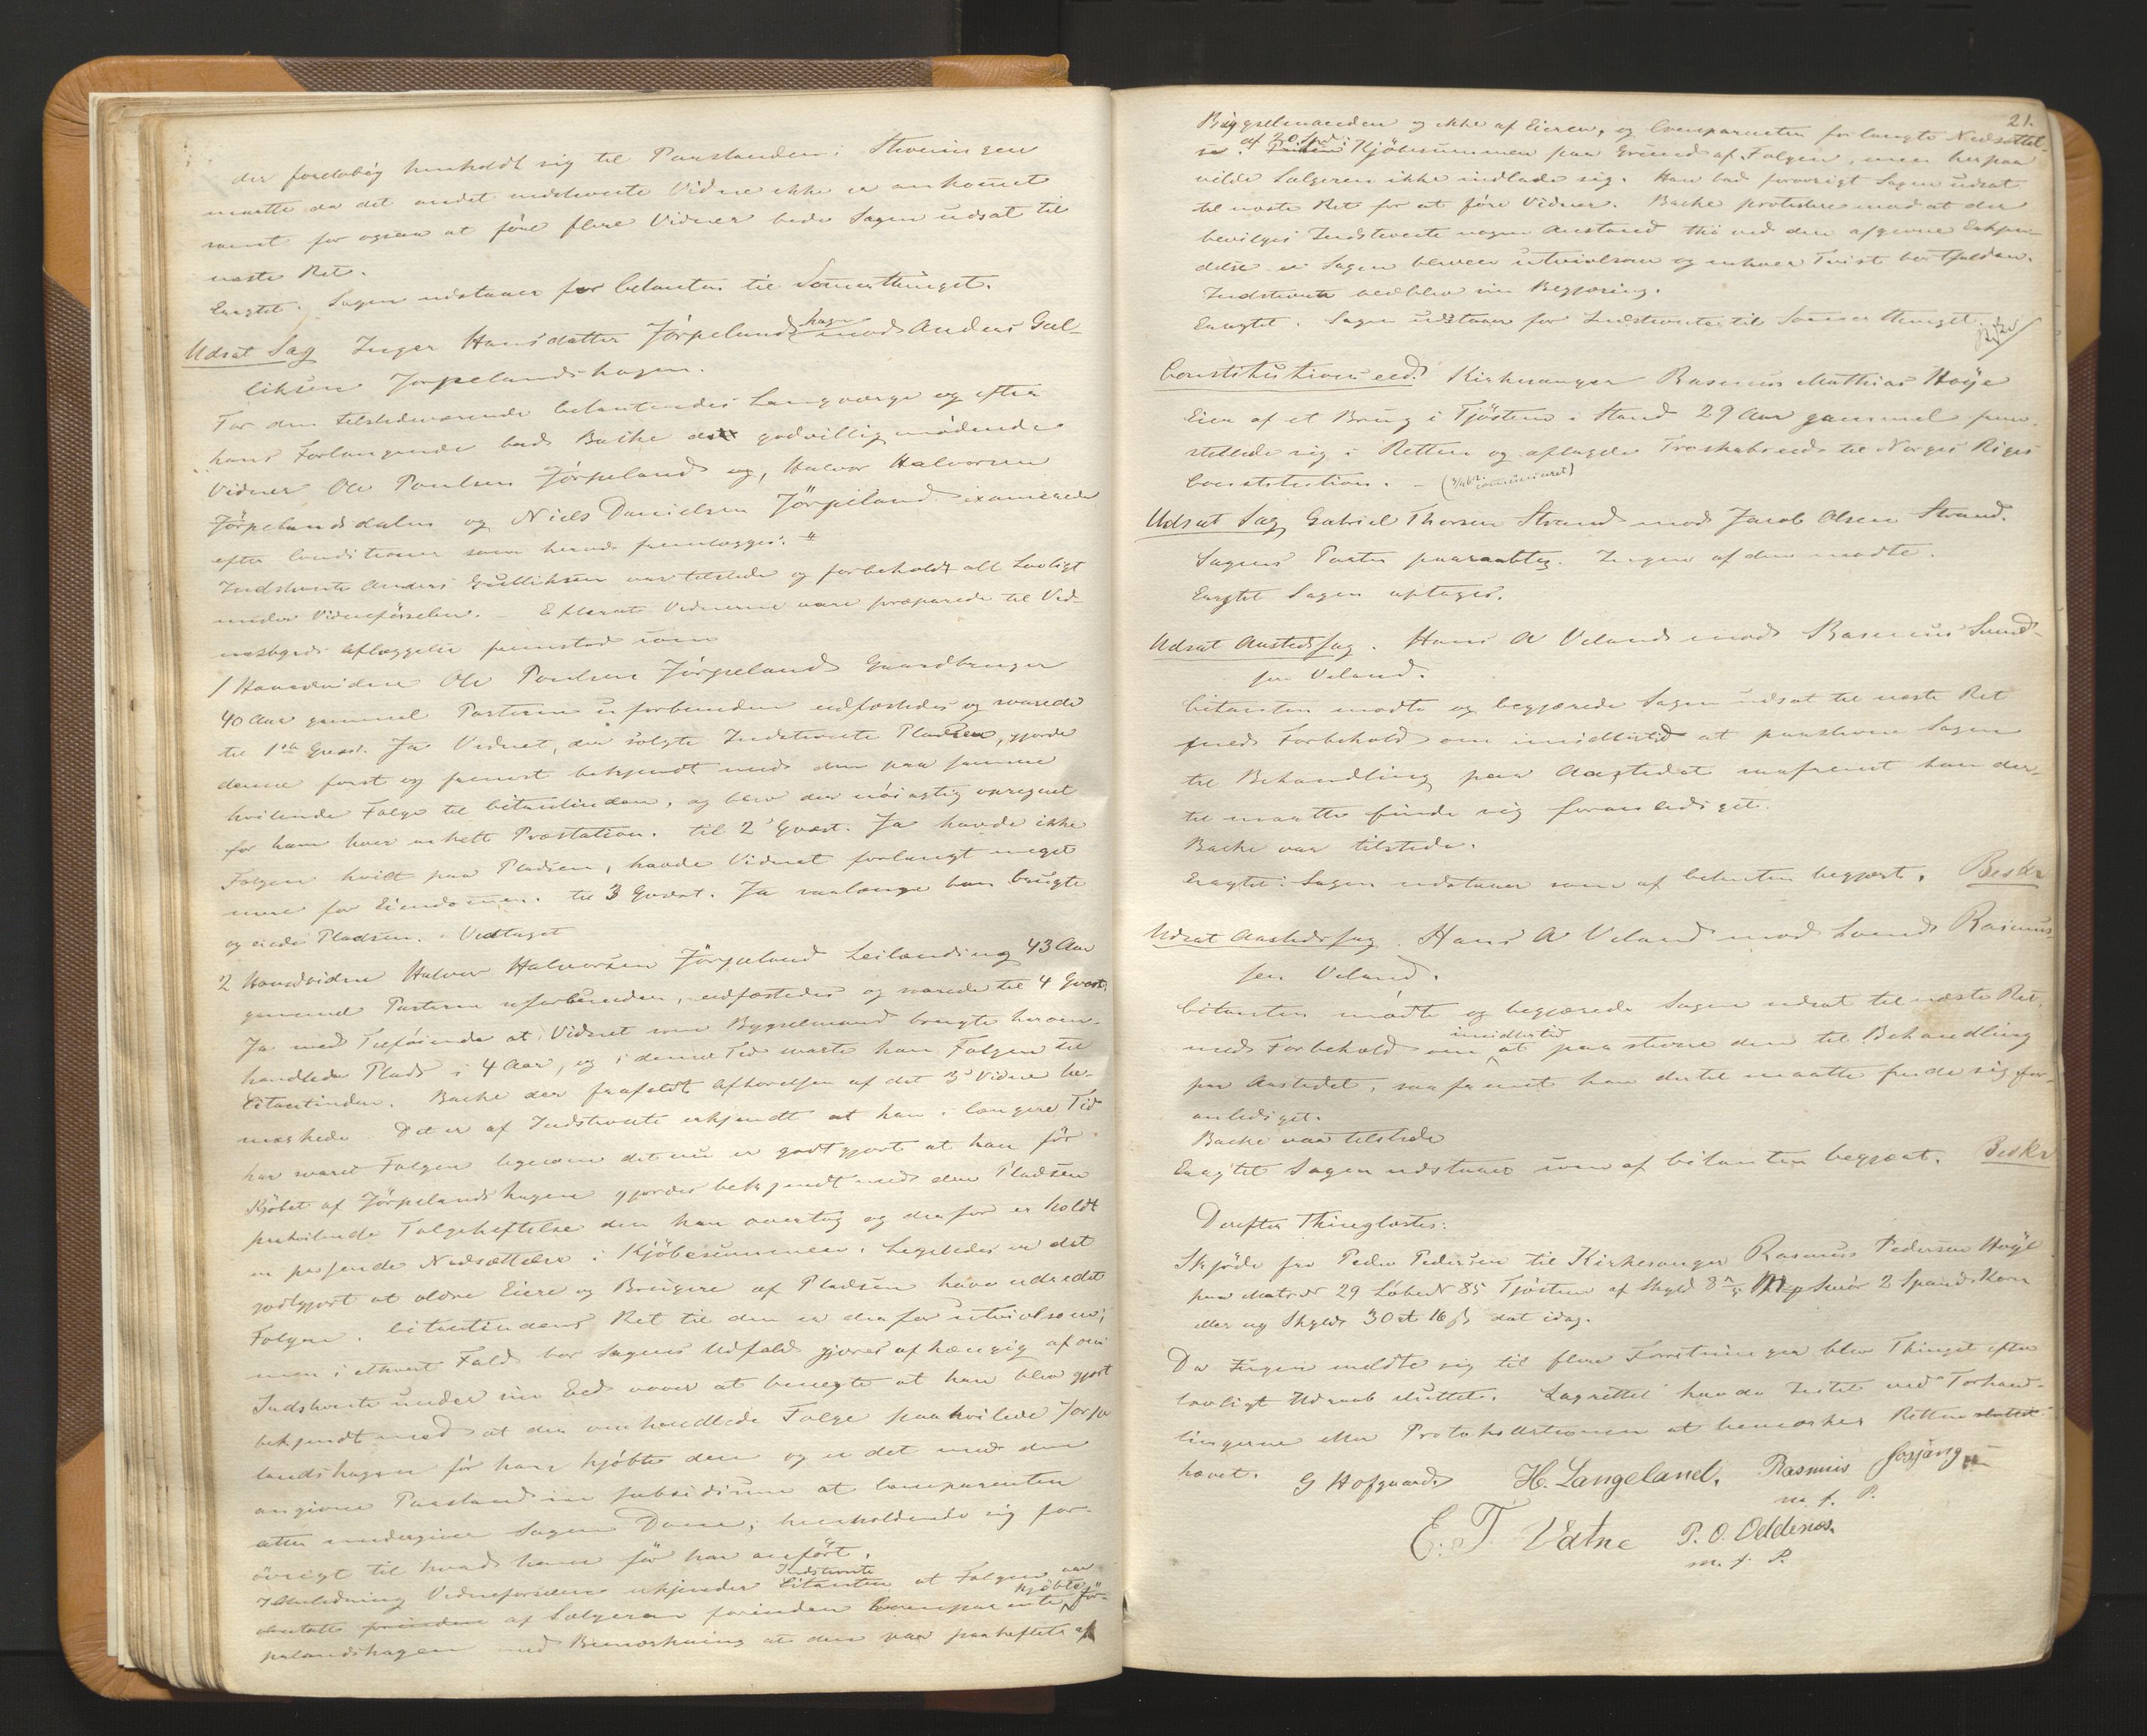 der foreløbig henholdt sig til Paastanden i Stevningen
maatte da det andet indstevnte Vidne ikke er ankomet
samt for ogsaa at føre flere Vidner bede Sagen udsat til
næste Ret.
Eragtet. Sagen udstaaer for Citanten til Somerthinget.
Udsat Sag Inger Hansdatter Jørpelandshagen mod Anders Gul-
liksen Jørpelandshagen.
For den tilstedeværende Citantindes Laugværge og efter
hans Forlangende bad Backe de godvillig mødende
Vidner Ole Poulsen Jørpeland og, Halvor Halvorsen
Jørpelandsdalen og Niels Danielsen Jörpeland examinerede
efter Conditioner som herved fremlægges.
Indstevnte Anders Gulliksen var tilstede og forbeholdt alt Lovligt
under Vidneførselen. - Efterat Vidnerne vare præparede til Vid-
nesbyrds Aflæggelse fremstod som
1 Hovedvidne Ole Poulsen Jørpeland Gaardbruger
40 Aar gammel Parterne uforbunden edfæstedes og svarede
til 1ste Qvæst. Ja Vidnet, der solgte Indstevnte Pladsen, gjorde
denne først og fremst bekjendt med den paa samme
hvilende Følge til Citantinden, og blev der nöiagtig opregnet
for ham hver enkelt Præstation. til 2 Qvæst. Ja havde ikke
Følgen hvilt paa Pladsen, havde Vidnet forlangt meget
mere for Eiendommen. til 3 Qvæst. Ja saalænge han brugte
og eiede Pladsen. Vedtaget
2 Hovedvidne Halvor Halvorsen Jörpeland Leilænding 43 Aar
gammel Parterne uforbunden, edfæstedes og svarede til 4 Qvæst.
Ja med Tilföiende at Vidnet som Bygselmand brugte herom-
handlede Plads i 4 Aar, og i denne Tid svarte han Følgen til
Citantinden. Backe der frafaldt Afhørelsen af det 3' Vidne be-
mærkede Det er af Indstevnte erkjendt at han i længere Tid
har svaret Følgen ligesom det nu er godtgjort at han för
Kjöbet af Jörpelandshagen gjordes bekjendt med den Pladsen
paahvilende Følgeheftelse den han overtog og derfor er holdt
en passende Nedsættelse i Kjöbesummen. Ligeledes er det
godtgjort at ældre Eiere og Brugere af Pladsen have udredet
Følgen. Citantindens Ret til den er derfor utvivlsom;
men i ethvert Fald bør Sagens Udfald gjøres afhængig af om
Indstevnte under sin Eed vover at benegte at han blev gjort
bekjendt med at den omhandlede Følge paahvilede Jørpe
landshagen för han kjöbte den og er det med den
angivne Paastand in subsidium at Comparenten
atter undergiver Sagen Dom; henholdende sig for-
övrigt til hvad han för har anført.
I Anledning Vidneførselen erkjender Indstevnte Citanten at Følgen var
omtalt forinden af Sælgeren forinden Comparenten kjöbte Jör-
pelandshagen med Bemærkning at den var paaheftet af
21.
Bygselmanden og ikke af Eieren, og Comparenten forlangte Nedsættel-
se af 20 Spd i Kjöbesummen paa Grund af Følgen, men herpaa
vilde Sælgeren ikke indlade sig. Han bad forøvrigt Sagen udsat
til næste Ret for at føre Vidner. Backe protestere mod at der
bevilges Indstevnte nogen Anstand thi ved den afgivne Erkjen-
delse er Sagen bleven utvivlsom og enhver Tvist bortfalden.
Indstevnte vedblev sin Begjæring.
Eragtet. Sagen udstaaer for Indstevnte til Sommerthinget.
Constitutionseed. Kirkesanger Rasmus Mathias Høye
Eier af et Brug i Tjöstem i Strand 29 Aar gammel frem-
stillede sig i Retten og aflagde Troskabseed til Norges Riges
Constitution. -
Udsat Sag Gabriel Thorsen Strand mod Jacob Olsen Strand.
Sagens Parter paaraabtes. Ingen af dem mødte.
Eragtet Sagen optages.
Udsat Aastedssag. Hans A Veland mod Rasmus Svend-
sen Veland.
Citanten mødte og begjærede Sagen udsat til næste Ret
med Forbehold om imidlertid at paastevne Sagen
til Behandling paa Aastedet saafremt han der-
til maatte finde sig foranlediget.
Backe var tilstede.
Eragtet: Sagen udstaaer som af Citanten begjært. Beskr
Udsat Aastedssag. Hans A Veland mod Svend Rasmus-
sen Veland.
Citanten mødte og begjærede Sagen udsat til næste Ret,
med Forbehold om imidlertid at paastevne den til Behandling
paa Aastedet, saafremt han dertil maatte finde sig for-
anlediget.
Backe var tilstede
Eragtet Sagen udstaaer som af Citanten begjært. Beskr
Derefter Thinglæstes:
Skjöde fra Peder Pedersen til Kirkesanger Rasmus Pedersen Høye
paa Matr No 29 Løbe No 85 Tjöstem af Skyld Smör 2 Spand Korn
eller ny Skyld 3 Ort 16 ß dat idag.
Da Ingen meldte sig til flere Forretninger blev Thinget efter
lovligt Udraab sluttet. Lagrettet havde Intet ved Forhand-
lingerne eller Protokollationen at bemærke. Retten sluttet
hævet.
G Hofgaard H. Langeland. Rasmus Fosjang
m. f. P.
E. T. Vatne P. O. Oddenes.
m. f. P.